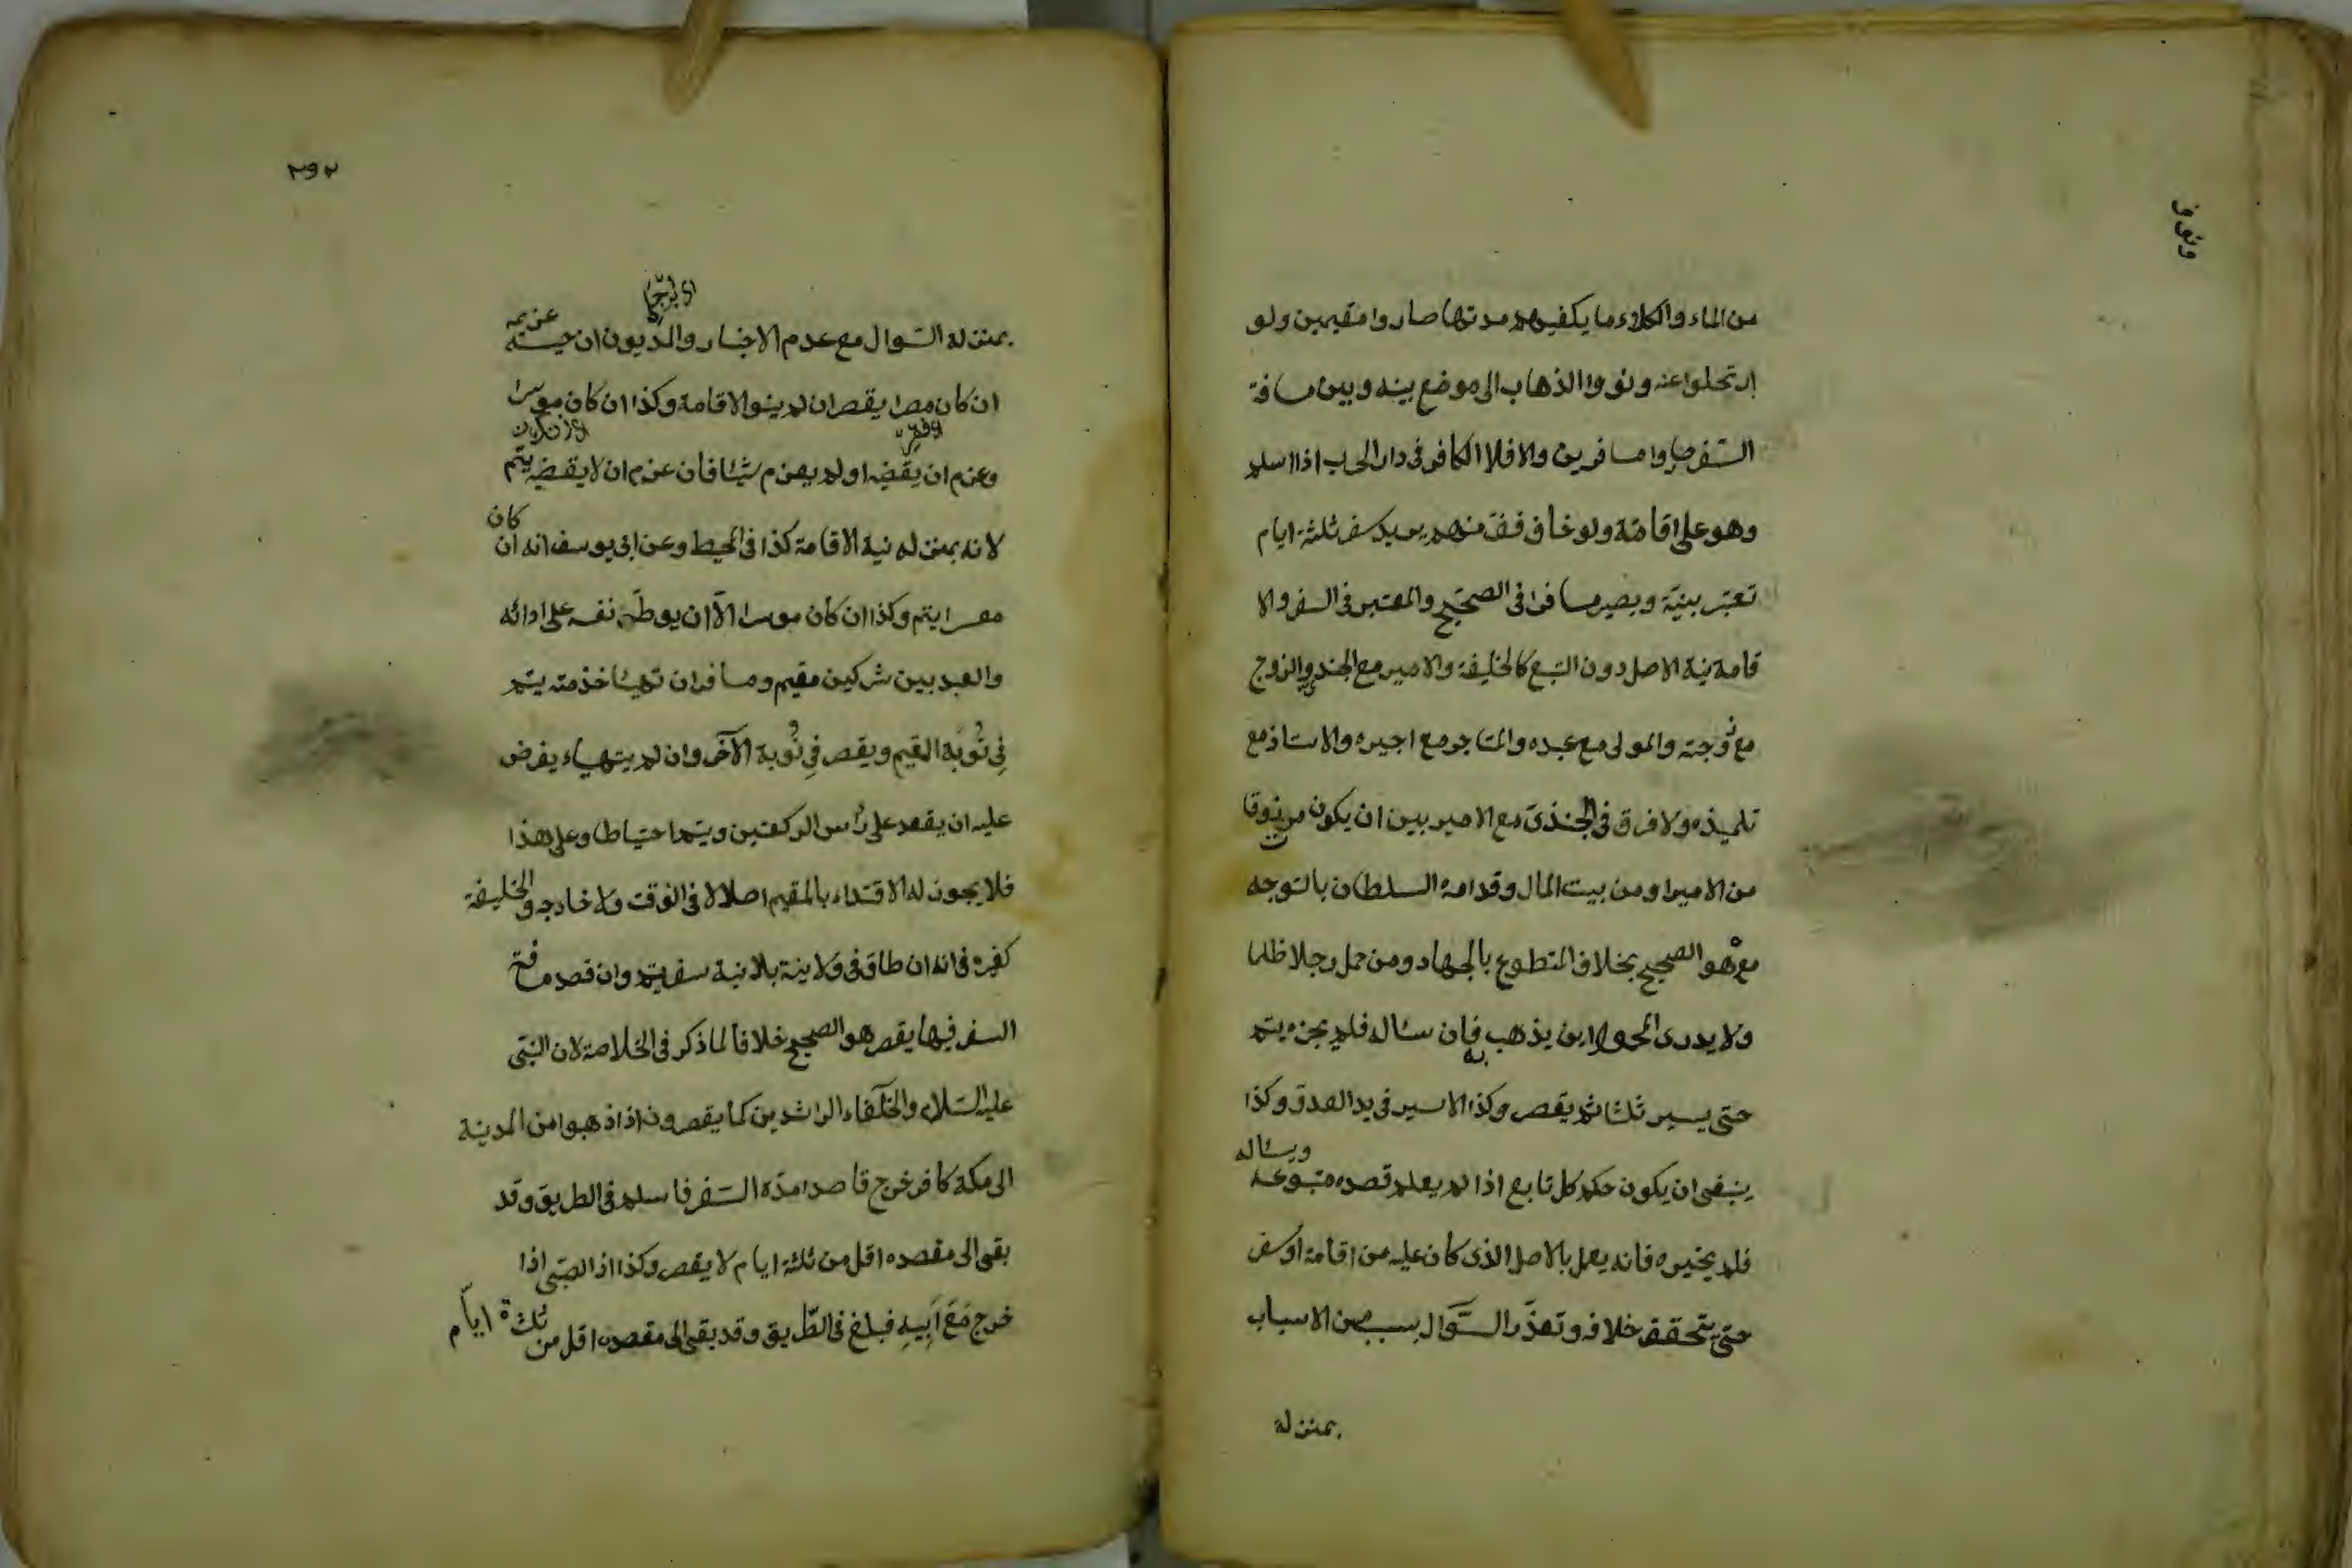 من الماء والكلاء ما يكفيهم مدتها صاروا مقيمين ولو
ارتحلوا عنه ونووا الذهاب الى موضع بينه وبين مسافة
السفر صاروا مسافرين والا فلا الكافر فى دار الحرب اذا اسلم
وهو على اقامته ولو خاف منهم يريد سفر ثلثة ايام
تعتبر بنيته ويصير مسافرا فى الصحيح والمعتبر فى السفر والا
قامة نية الاصل دون التبع كالخليفة والامير مع الجندى والزوج
مع زوجته والمولى مع عبده والمستاجر مع اجيره والاستاذ مع
تلميذه ولا فرق فى الجندى مع الامير بين ان يكون مرزوقا
من الامير او من بيت المال وقد امره السلطان بالتوجه
مع هو الصحيح بخلاف المتطوع بالجهاد ومن حمل رجلا ظلما
ولا يدرى المحمول اين يذهب به فان سئاله فلم يخبره يتم
حتى يسير ثلثا ثم يقصر وكذا الاسير فى يد العدو وكذا
ينبغى ان يكون حكم كل تابع اذا لم يعلم قصده متبوعه
ويسئاله
فلم يخبره فانه يعمل بالاصل الذى كان عليه من اقامة او سفر
حتى يتحقق خلافه وتعذر السؤال بسبب من الاسباب
بمنزلة
بمنزلة السؤال مع عدم الاخبار والمديون ان حبسه
غريمه
ان كان معسرا يقصر ان لم ينو الاقامة وكذا ان كان موسرا
وعزم ان يقضيه او لم يعزم شيئا فان عزم ان لا يقضيه يتم
لانه بمنزلة نية الاقامة كذا فى المحيط وعن ابى يوسف انه ان
كان
معسرا يتم وكذا ان كان موسرا الا ان يوطن نفسه على ادائه
والعبد بين شركين مقيم ومسافر ان تهيئا خدمته يتم
فى نوبة المقيم ويقصر فى نوبة الآخر وان لم يتهياء يفرض
عليه ان يقعد على رأس الركعتين ويتم احتياطا وعلى هذا
فلا يجوز له الاقتداء بالمقيم اصلا لا فى الوقت ولا خارجه والخليفة
كغيره فى انه ان طاف فى ولايته بلا نية سفر يتم وان قصد مسافة
السفر فيها يقصر هو الصحيح خلافا لما ذكر فى الخلاصة لان النبى
عليه السلام والخلفاء الراشدين كما يقصرون اذا ذهبوا من المدينة
الى مكة كافر خرج قاصدا مدة السفر فاسلم فى الطريق وقد
بقى الى مقصده اقل من ثلثة ايام لا يقصر وكذا اذا الصبى اذا
خرج مع ابيه فبلغ فى الطريق وقد بقى الى مقصده اقل من ثلثة ايام